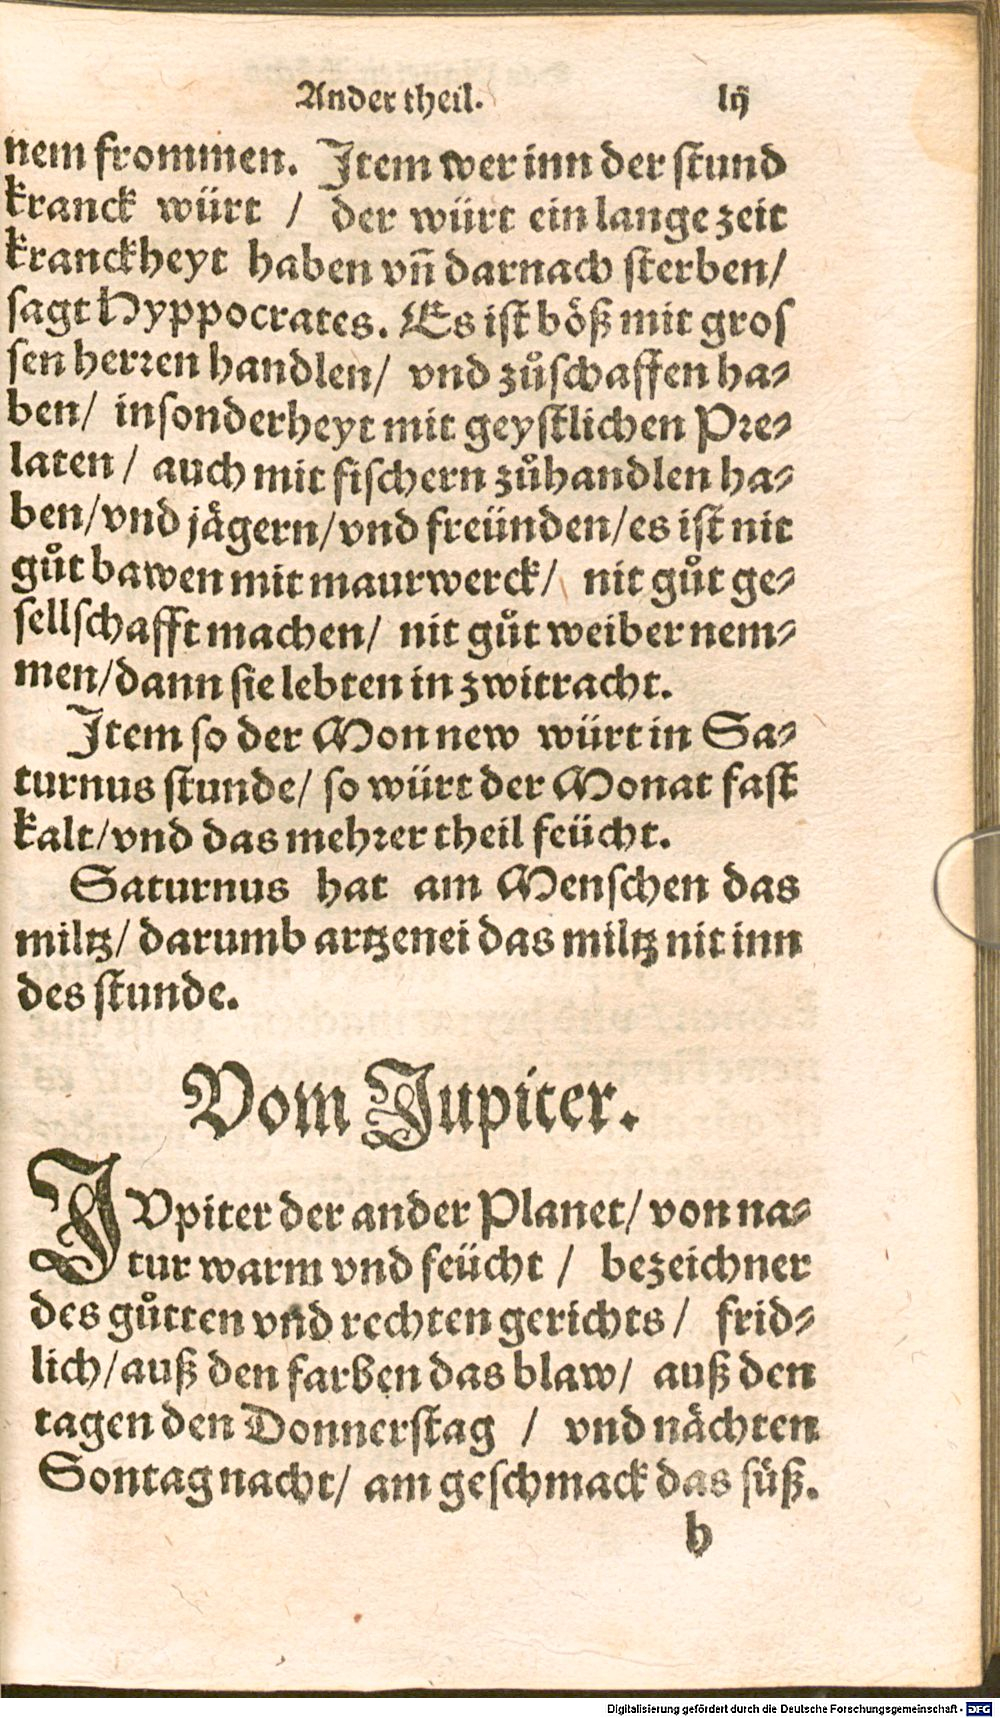 Ander theil. lij
nem frommen. Item wer inn der stund
kranck würt / der würt ein lange zeit
kranckheyt haben vñ darnach sterben/
sagt Hyppocrates. Es ist böß mit gros
sen herren handlen/ vnd zůschaffen ha-
ben/ insonderheyt mit geystlichen Pre-
laten / auch mit fischern zůhandlen ha-
ben/vnd jägern/vnd freünden/es ist nit
gůt bawen mit maurwerck/ nit gůt ge-
sellschafft machen/ nit gůt weiber nem-
men/dann sie lebten in zwitracht.
Item so der Mon new würt in Sa-
turnus stunde/ so würt der Monat fast
kalt/vnd das mehrer theil feücht.
Saturnus hat am Menschen das
miltz/ darumb artzenei das miltz nit inn
des stunde.
Vom Jupiter.
JVpiter der ander Planet/ von na-
tur warm vnd feücht / bezeichner
des gůtten vnd rechten gerichts/ frid-
lich/auß den farben das blaw/ auß den
tagen den Donnerstag / vnd nächten
Sontag nacht/ am geschmack das süß.
h
Digitalisierung gefördert durch die Deutsche Forschungsgemeinschaft - DFG